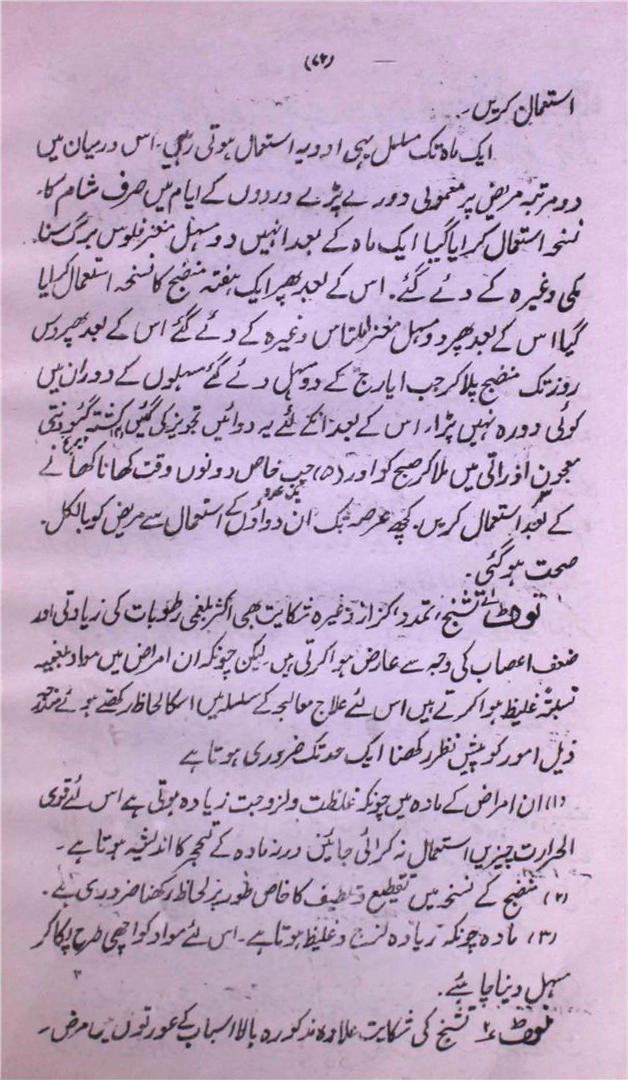 (۷۲)
استعمال کریں۔
ایک ماہ تک مسلسل یہی ادویہ استعمال ہوتی رہیں۔ اس درمیان میں
دو مرتبہ مریض پر معمولی دورے پڑے دردوں کے ایام میں صرف شام کا
نسخہ استعمال کرایا گیا ایک ماہ کے بعد انہیں دو مسہل مغز فلوس برگ سنا
مکی وغیرہ کے دئے گئے۔ اس کے بعد پھر ایک ہفتہ منضج کا نسخہ استعمال کرایا
گیا اس کے بعد پھر دو مسہل مغز املتاس وغیرہ کے دئے گئے اس کے بعد پھر دس
روز تک منضج پلا کر حب ایارج کے دو مسہل دئے گئے مسہلوں کے دوران میں
کوئی دورہ نہیں پڑا، اس کے بعد انکے لئے یہ دوائیں تجویز کی گئیں کشتہ گئودنتی
معجون اذراقی میں ملا کر صبح کو اور (۵) حب خاص دونوں وقت کھانا کھانے
کے بعد استعمال کریں۔ کچھ عرصہ تک ان دواؤں کے استعمال سے مریض کو بالکل
صحت ہو گئی۔
نوٹ ۱ تشنج، تمدد، کزاز وغیرہ شکایت بھی اکثر بلغمی رطوبات کی زیادتی اور
ضعف اعصاب کی وجہ سے عارض ہوا کرتی ہیں۔ لیکن چونکہ ان امراض میں مواد بلغمیہ
نسبتہً غلیظ ہوا کرتے ہیں اس لئے علاج معالجہ کے سلسلہ میں اسکا لحاظ رکھتے ہوئے مندرجہ
ذیل امور کو پیش نظر رکھنا ایک حد تک ضروری ہوتا ہے
(۱) ان امراض کے مادہ میں چونکہ غلظت و لزوجت زیادہ ہوتی ہے اس لئے قوی
الحرارت چیزیں استعمال نہ کرائی جائیں ورنہ مادہ کے تحجر کا اندیشہ ہوتا ہے۔
(۲) منضج کے نسخہ میں تقطیع و تلطیف کا خاص طور پر لحاظ رکھنا ضروری ہے۔
(۳) مادہ چونکہ زیادہ لزج و غلیظ ہوتا ہے۔ اس لئے مواد کو اچھی طرح پکا کر
مسہل دینا چاہئے۔
نوٹ ۲ تشنج کی شکایت علاوہ مذکورہ بالا اسباب کے عورتوں میں مرض